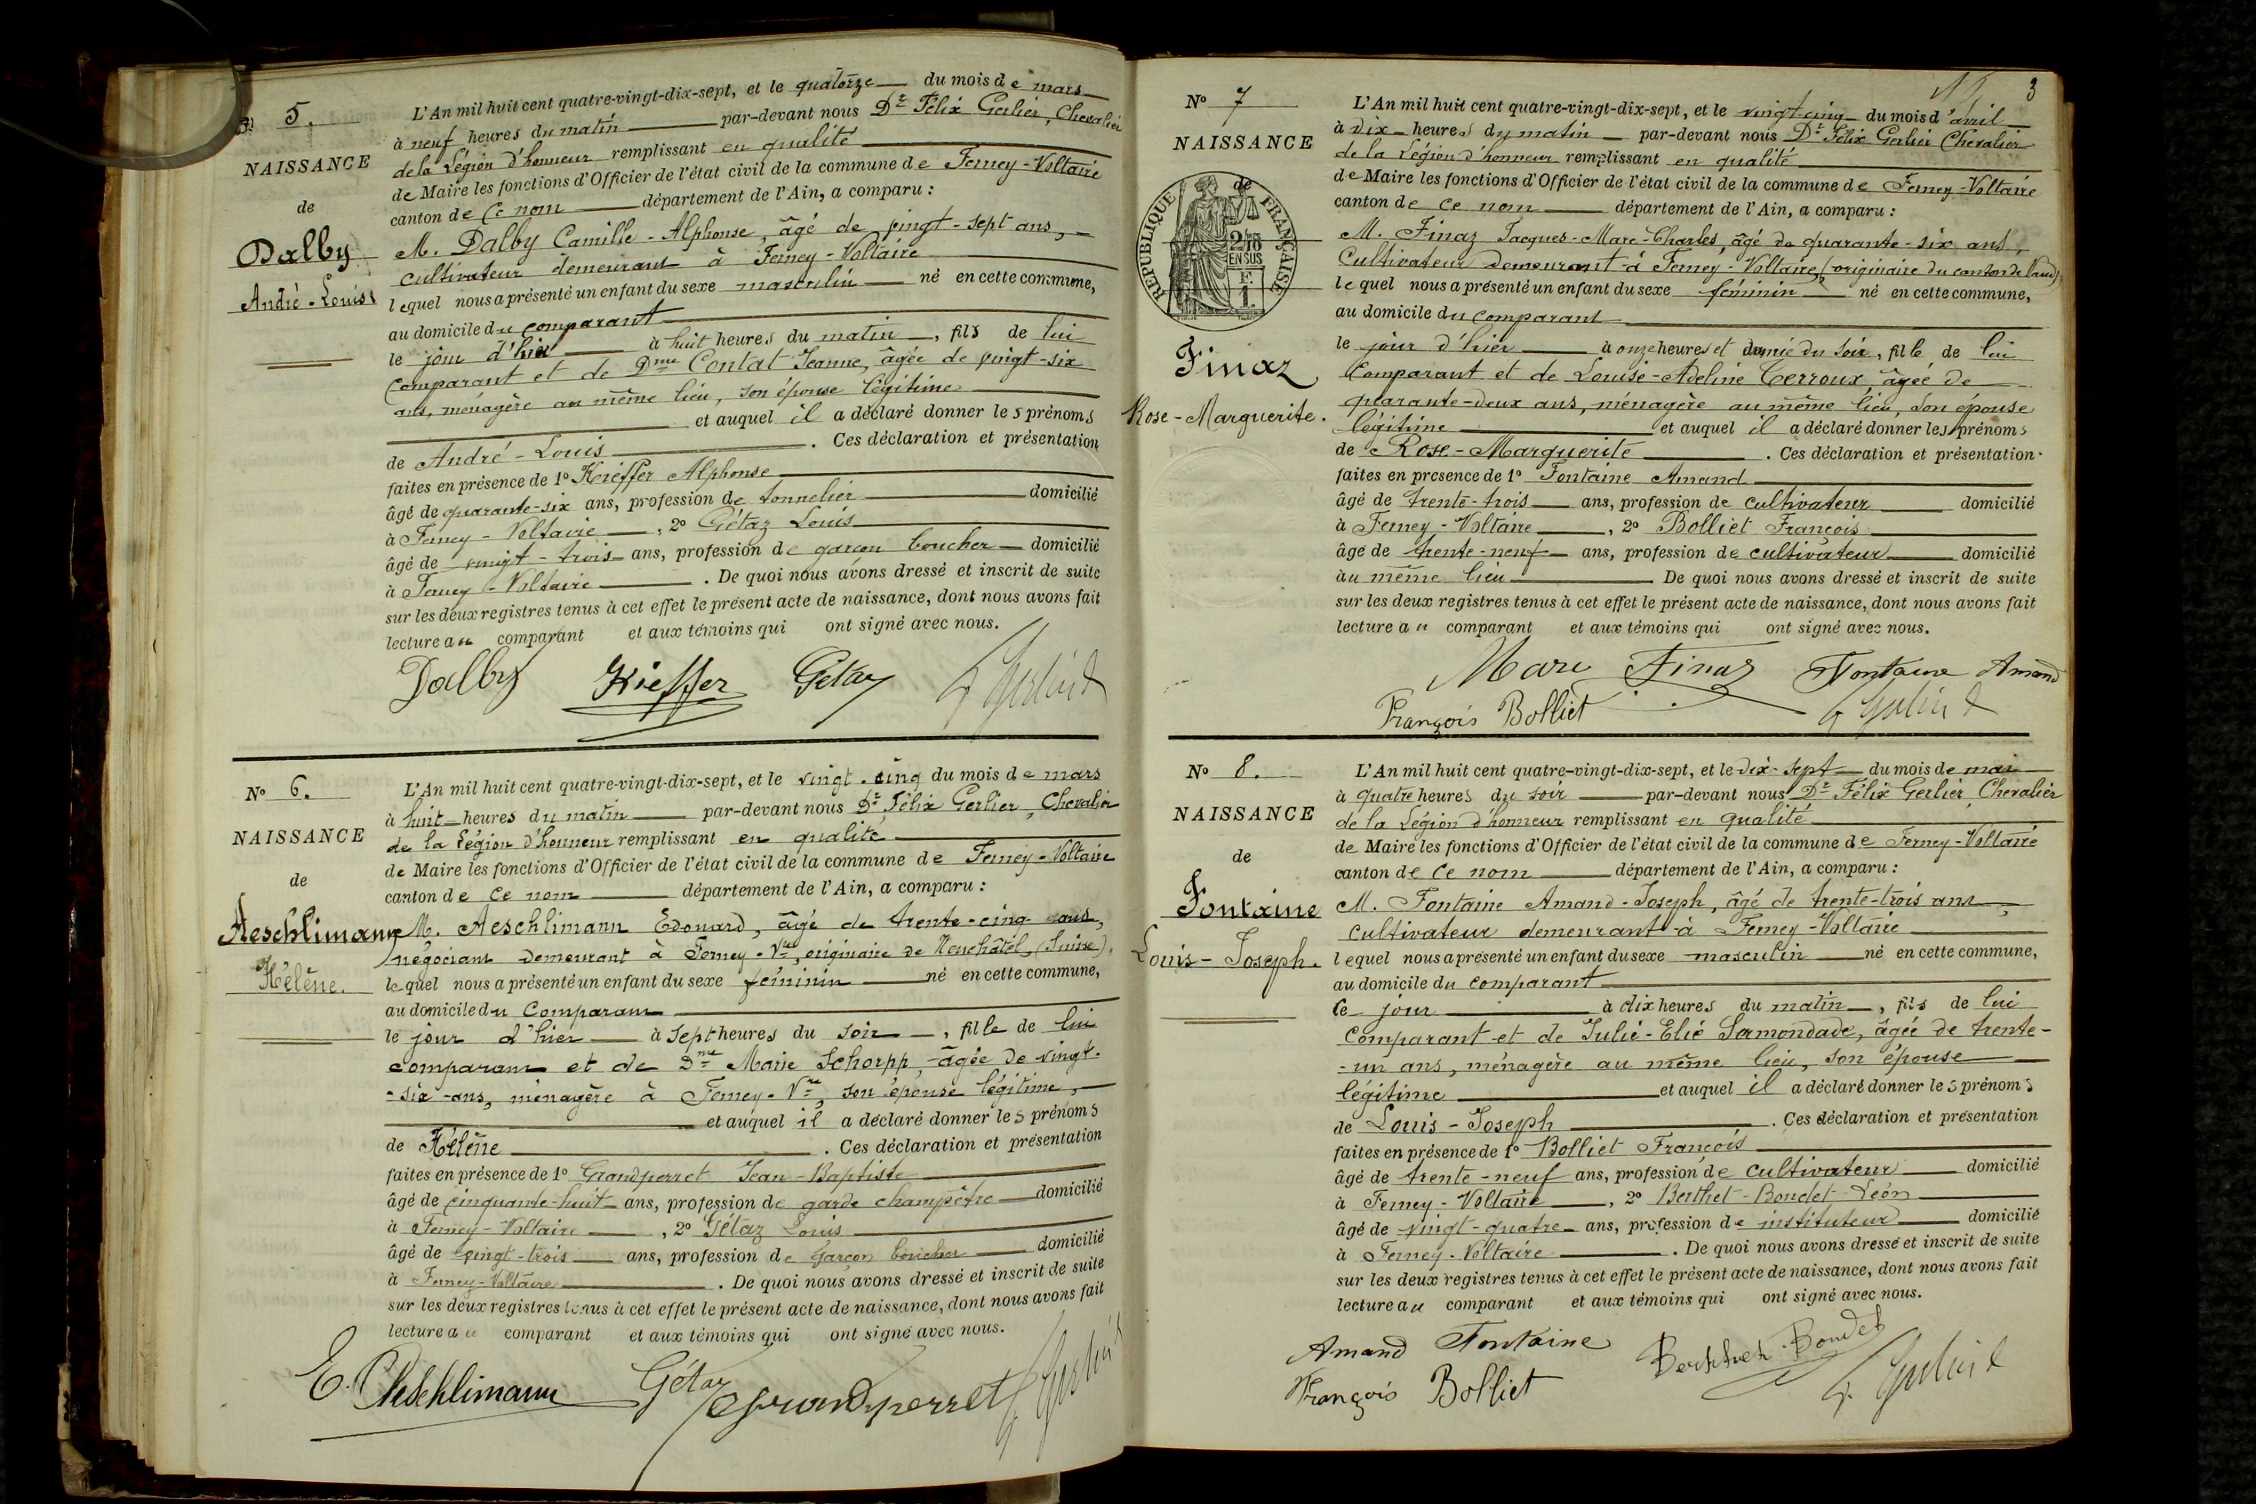 Nº 5.
NAISSANCE
de
Dalby
André-Louis
L'An mil huit cent quatre-vingt-dix-sept, et le quatorze du mois de mars
à neuf heures du matin par-devant nous Dr Félix Gerlier, Chevalier
de la Légion d'honneur remplissant en qualité
de Maire les fonctions d'Officier de l'état civil de la commune de Ferney-Voltaire
canton de ce nom département de l'Ain, a comparu :
M. Dalby Camille-Alphonse, âgé de vingt-sept ans,
cultivateur demeurant à Ferney-Voltaire
lequel nous a présenté un enfant du sexe masculin né en cette commune,
au domicile du comparant
le jour d'hier à huit heures du matin, fils de lui
comparant et de Dme Contat Jeanne, âgée de vingt-six
ans, ménagère au même lieu, son épouse légitime
et auquel il a déclaré donner les prénoms
de André-Louis. Ces déclaration et présentation
faites en présence de 1º Kieffer Alphonse
âgé de quarante-six ans, profession de tonnelier domicilié
à Ferney-Voltaire, 2º Gétaz Louis
âgé de vingt-trois ans, profession de garçon boucher domicilié
à Ferney-Voltaire. De quoi nous avons dressé et inscrit de suite
sur les deux registres tenus à cet effet le présent acte de naissance, dont nous avons fait
lecture au comparant et aux témoins qui ont signé avec nous.
Dalby Kieffer Gétaz F. Gerlier
Nº 6.
NAISSANCE
de
Aeschlimann
Hélène.
L'An mil huit cent quatre-vingt-dix-sept, et le vingt-cinq du mois de mars
à huit heures du matin par-devant nous Dr Félix Gerlier, Chevalier
de la Légion d'honneur remplissant en qualité
de Maire les fonctions d'Officier de l'état civil de la commune de Ferney-Voltaire
canton de ce nom département de l'Ain, a comparu :
M. Aeschlimann Edouard, âgé de trente-cinq ans,
négociant demeurant à Ferney-Vre, originaire de Neuchâtel, (Suisse),
lequel nous a présenté un enfant du sexe féminin né en cette commune,
au domicile du Comparant
le jour d'hier à sept heures du soir, fille de lui
comparant et de Dme Marie Schorpp, âgée de vingt-
-six-ans, ménagère à Ferney-Vre, son épouse légitime,
et auquel il a déclaré donner les prénoms
de Hélène. Ces déclaration et présentation
faites en présence de 1º Grandperret Jean-Baptiste
âgé de cinquante-huit ans, profession de garde champêtre domicilié
à Ferney-Voltaire, 2º Gétaz Louis
âgé de vingt-trois ans, profession de garçon boucher domicilié
à Ferney-Voltaire. De quoi nous avons dressé et inscrit de suite
sur les deux registres tenus à cet effet le présent acte de naissance, dont nous avons fait
lecture au comparant et aux témoins qui ont signé avec nous.
E. Aeschlimann Gétaz Grandperret F. Gerlier
3
Nº 7
NAISSANCE
de
RÉPUBLIQUE FRANÇAISE
2/10
EN SUS
F.
1.
Finaz
Rose-Marguerite.
L'An mil huit cent quatre-vingt-dix-sept, et le vingt-cinq du mois d'avril
à dix heures du matin par-devant nous Dr Félix Gerlier Chevalier
de la Légion d'honneur remplissant en qualité
de Maire les fonctions d'Officier de l'état civil de la commune de Ferney-Voltaire
canton de ce nom département de l'Ain, a comparu :
M. Finaz Jacques-Marc-Charles, âgé de quarante-six ans,
Cultivateur demeurant à Ferney-Voltaire, (originaire du canton de Vaud),
lequel nous a présenté un enfant du sexe féminin né en cette commune,
au domicile du comparant
le jour d'hier à onze heures et demie du soir, fille de lui
comparant et de Louise-Adeline Cerroux, âgée de
quarante-deux ans, ménagère au même lieu, son épouse
légitime et auquel il a déclaré donner les prénoms
de Rose-Marguerite. Ces déclaration et présentation
faites en présence de 1º Fontaine Amand
âgé de trente-trois ans, profession de cultivateur domicilié
à Ferney-Voltaire, 2º Bolliet François
âgé de trente-neuf ans, profession de cultivateur domicilié
au même lieu. De quoi nous avons dressé et inscrit de suite
sur les deux registres tenus à cet effet le présent acte de naissance, dont nous avons fait
lecture au comparant et aux témoins qui ont signé avec nous.
Marc Finaz Fontaine Amand
François Bolliet F. Gerlier
Nº 8.
NAISSANCE
de
Fontaine
Louis-Joseph.
L'An mil huit cent quatre-vingt-dix-sept, et le dix-sept du mois de mai
à quatre heures du soir par-devant nous Dr Félix Gerlier Chevalier
de la Légion d'honneur remplissant en qualité
de Maire les fonctions d'Officier de l'état civil de la commune de Ferney-Voltaire
canton de ce nom département de l'Ain, a comparu :
M. Fontaine Amand-Joseph, âgé de trente-trois ans,
cultivateur demeurant à Ferney-Voltaire
lequel nous a présenté un enfant du sexe masculin né en cette commune,
au domicile du comparant
ce jour à dix heures du matin, fils de lui
comparant et de Julie-Elie Lamondade, âgée de trente-
-un ans, ménagère au même lieu, son épouse
légitime et auquel il a déclaré donner les prénoms
de Louis-Joseph. Ces déclaration et présentation
faites en présence de 1º Bolliet François
âgé de trente-neuf ans, profession de cultivateur domicilié
à Ferney-Voltaire, 2º Berthet-Bondet Léon
âgé de vingt-quatre ans, profession de instituteur domicilié
à Ferney-Voltaire. De quoi nous avons dressé et inscrit de suite
sur les deux registres tenus à cet effet le présent acte de naissance, dont nous avons fait
lecture au comparant et aux témoins qui ont signé avec nous.
Amand Fontaine Berthet-Bondet
François Bolliet F. Gerlier